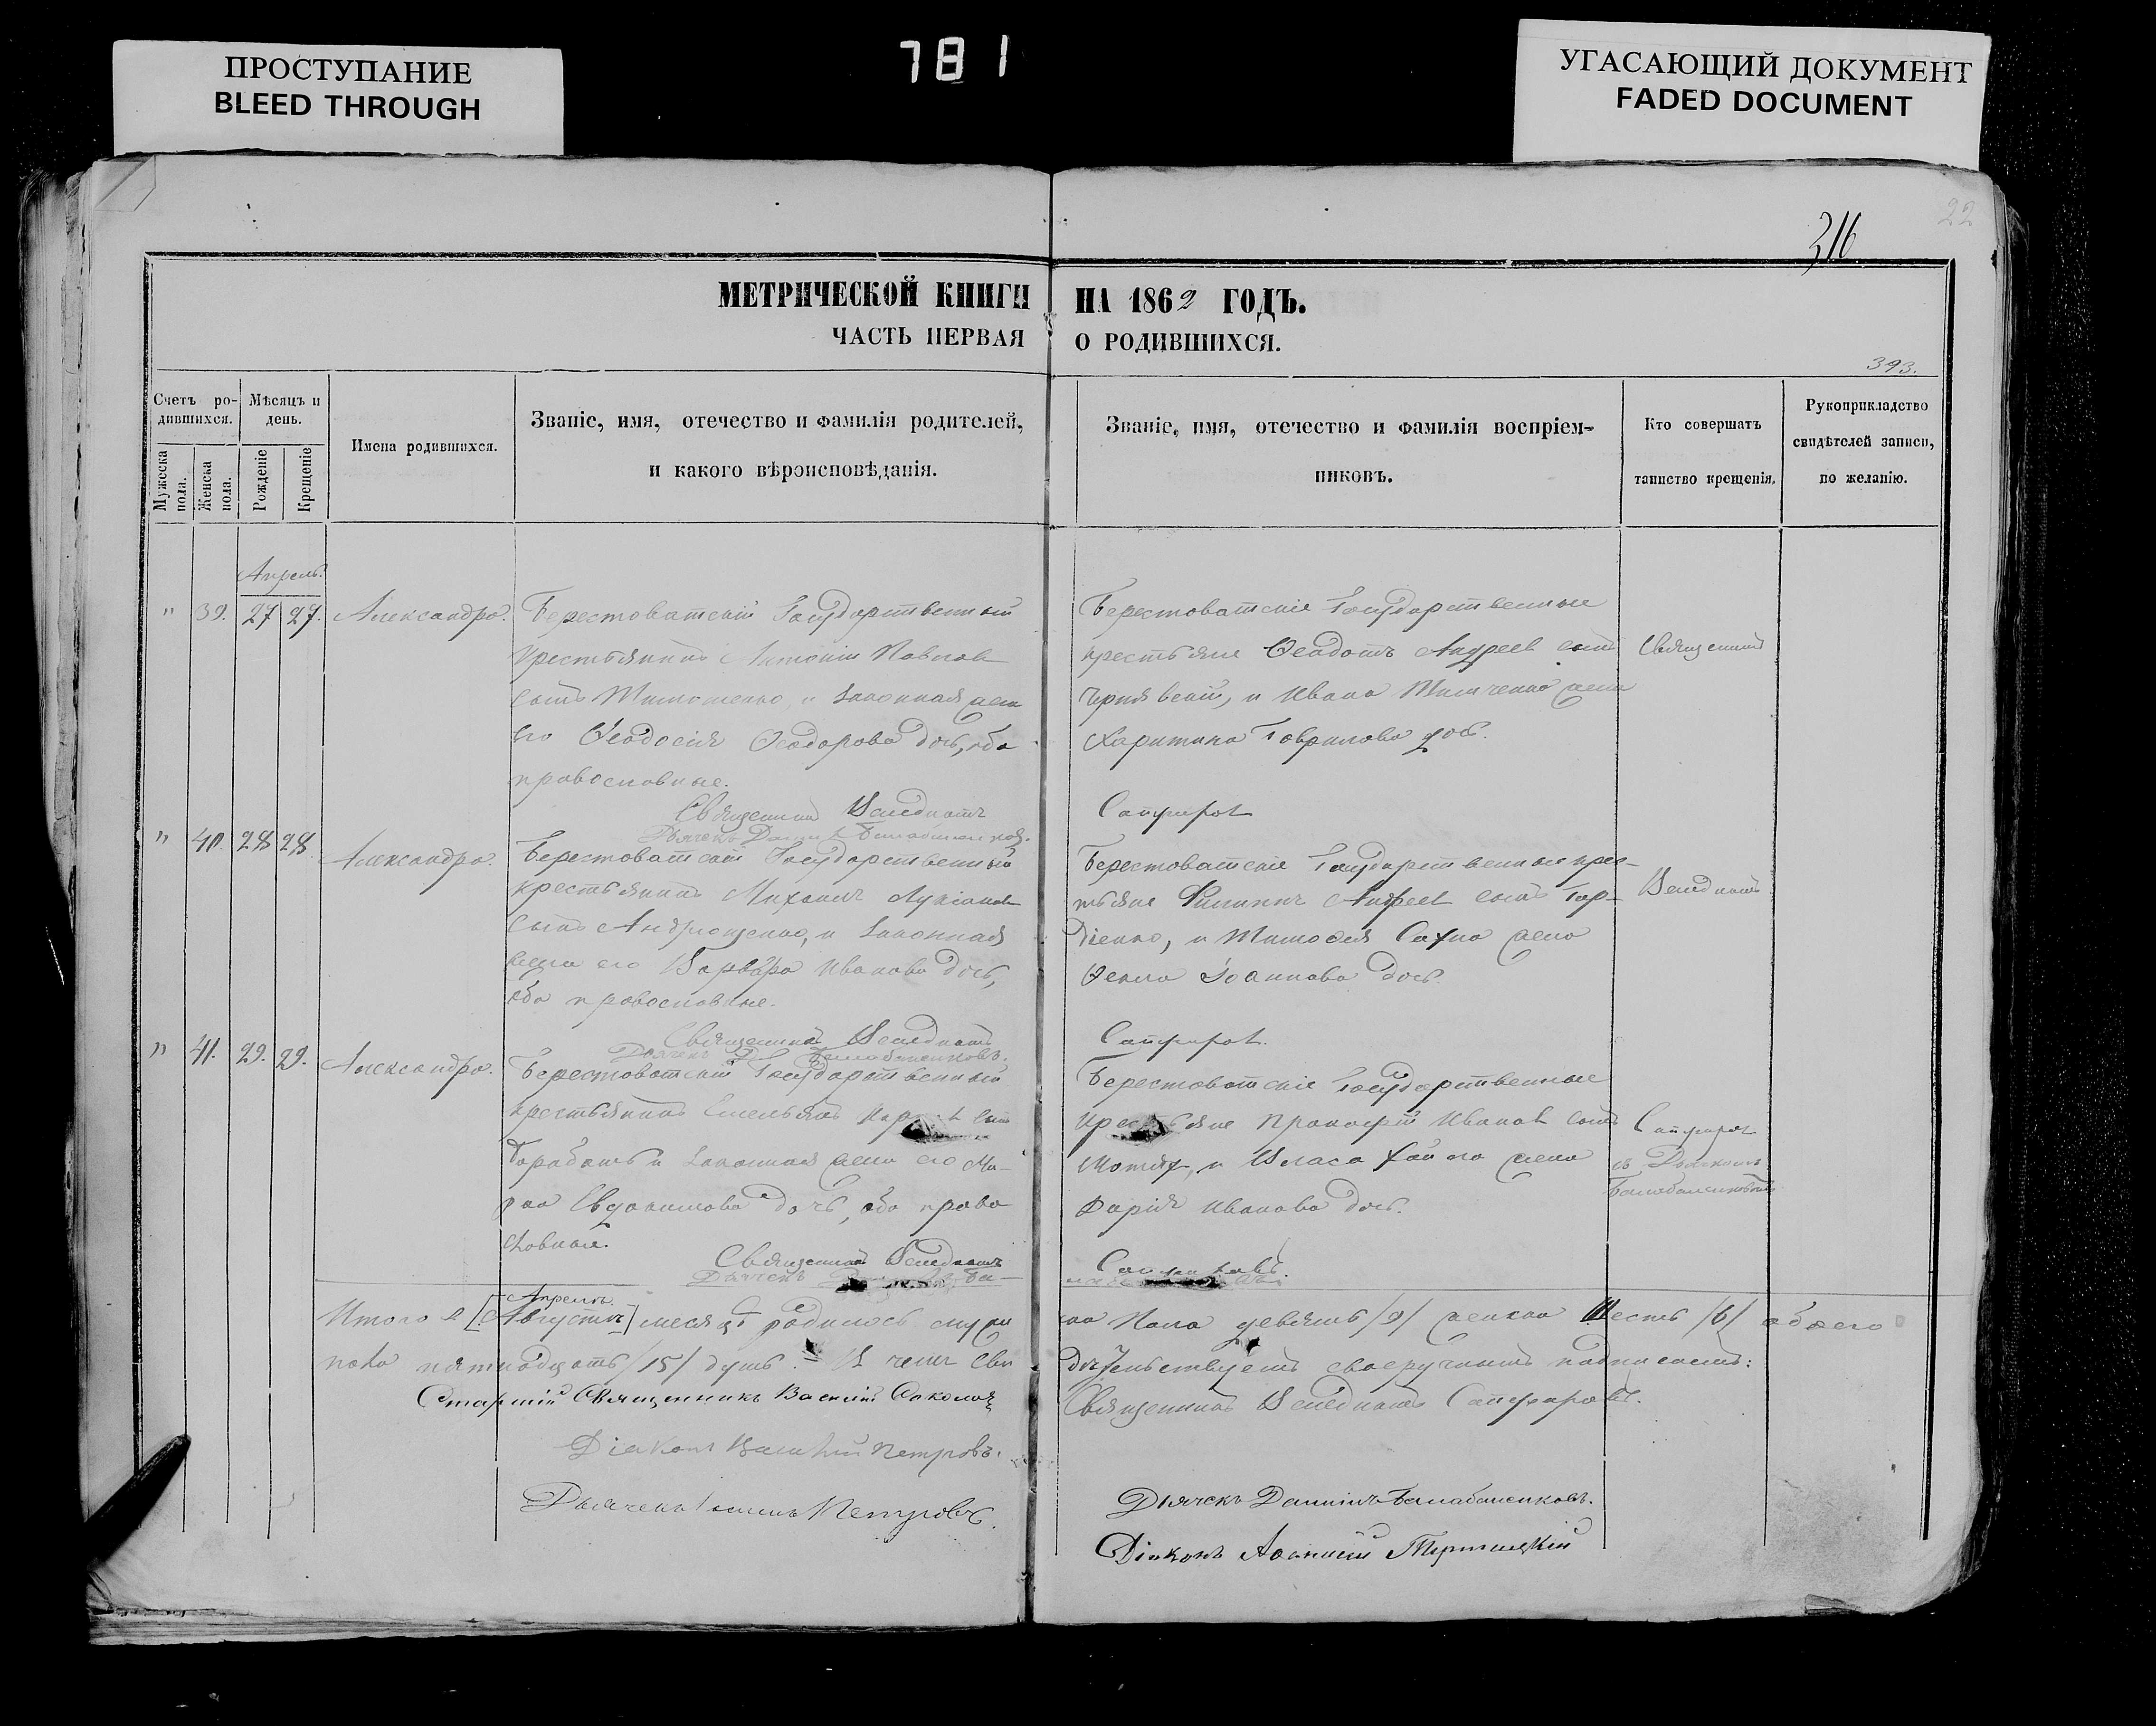 781
ПРОСТУПАНИЕ
BLEED THROUGH
УГАСАЮЩИЙ ДОКУМЕНТ
FADED DOCUMENT
22
316
МЕТРИЧЕСКОЙ КНИГИ НА 1862 ГОДЪ.
ЧАСТЬ ПЕРВАЯ О РОДИВШИХСЯ.
393.
Счетъ ро-
дившихся.
Мужеска
пола.
Женска
пола.
Мѣсяцъ и
день.
Рожденіе
Крещеніе
Имена родившихся.
Званіе, имя, отечество и фамилія родителей,
и какого вѣроисповѣданія.
Званіе, имя, отечество и фамилія воспріем-
никовъ.
Кто совершатъ
таинство крещенія.
Рукоприкладство
свидѣтелей записи,
по желанію.
Апрель.
" 39. 27 27. Александра.
Берестоватскій Государственный
крестьянинъ Антоній Павловъ
сынъ Тимошенко, и законная жена
его Ѳеодосія Ѳеодорова дочь, оба
православные.
Священникъ Венедиктъ
Берестоватскіе Государственные
крестьяне Ѳеодотъ Андреев сынъ
Чернявскій, и Ивана жена
Харитина Гаврилова доч.
Сапфиров
Священникъ
" 40. 28 28. Александра.
Берестоватскій Государственный
крестьянинъ Михаилъ Лукіановъ
сынъ Андрющенко, и законная
жена его Варвара Иванова дочь,
оба православные.
Священникъ Венедиктъ
Берестоватскіе Государственные крес-
тьяне Филиппъ Андреев сынъ Гор-
діенко, и Тимофея Сахно жена
Ѳекла Іоаннова дочь.
Сапфиров.
Венедиктъ
" 41. 29. 29. Александра.
Берестоватскій Государственный
крестьянинъ Емельянъ сынъ
Барабашъ и законная жена его Ма-
Евдокимова дочь, оба право
славные.
Священникъ Венедиктъ
Берестоватскіе Государственные
крестьяне Прокофій Иванов сынъ
и Власа жена
Дарія Иванова дочь.
Сапфировъ.
Сапфиров
съ Дьячкомъ
Балабаненковымъ
Апрель.
Итого в [Августъ] месяцѣ родилось муж
ска пола девять /9/ женска шесть /6/ обоего
пола пятнадцать /15/ душъ. — В чемъ сви
детельствуетъ своеручнымъ подписомъ:
Старшій Священникъ Василій Соколов
Священникъ Венедиктъ Сапфировъ.
Діаконъ Василій Петровъ.
Дьячекъ Петровъ.
Дьячекъ Даніилъ Балабаненковъ.
Діаконъ